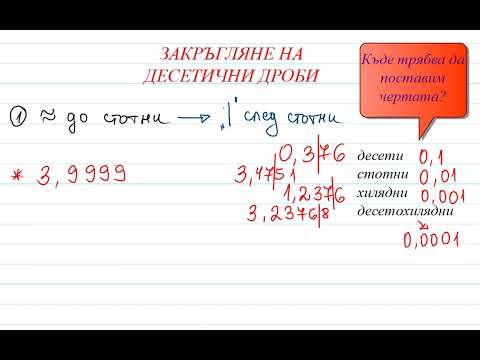 ЗАКРЪГЛЯНЕ НА
ДЕСЕТИЧНИ ДРОБИ
Къде трябва да
поставим
чертата?
① ≈ до стотни → „|" след стотни
0,3|76 десети 0,1
3,47|51 стотни 0,01
1,237|6 хилядни 0,001
3,2376|8 десетохилядни
0,0001
* 3,9999